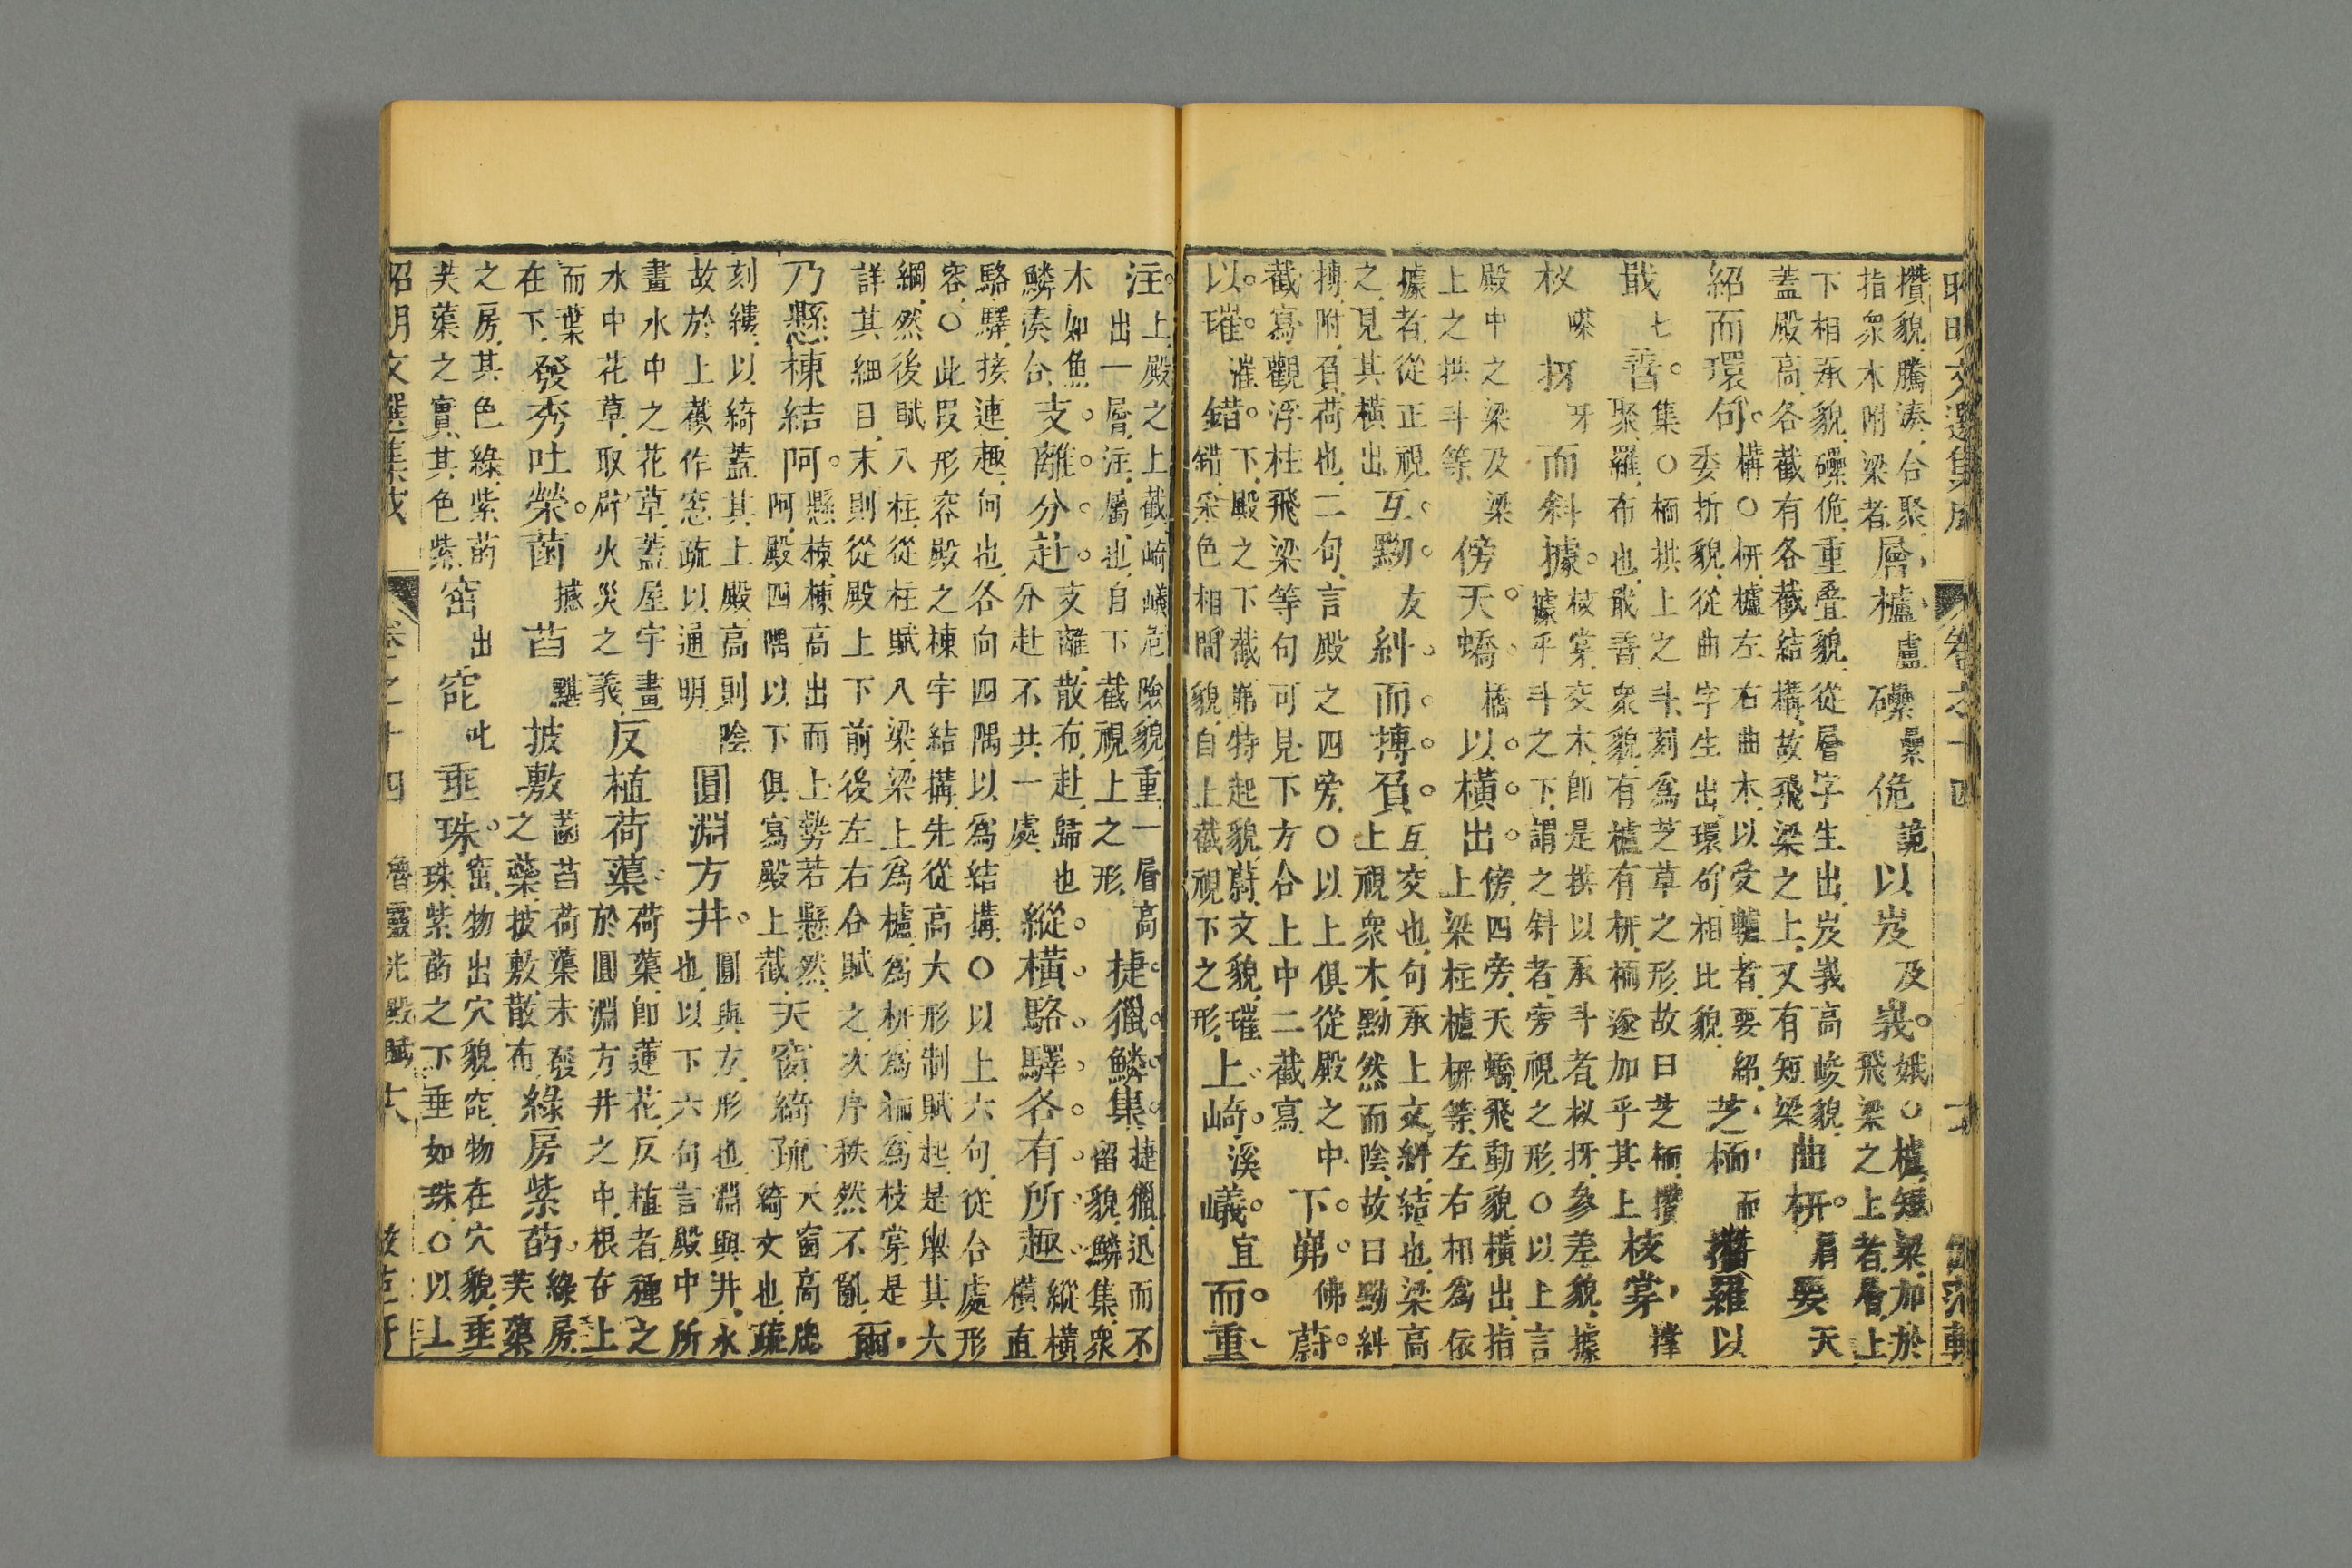 昭明文選集成 卷之十四
攢貌騰湊合聚指衆木附梁者層櫨盧磥壘佹詭以岌及峩娥〇櫨短梁加於飛梁之上者層上
下相承貌磥佹重叠貌從層字生出岌峩高峻貌蓋殿高各截有各截結構故飛梁之上又有短梁曲枅肩要天
紹而環句構〇枅櫨左右曲木以受轤者要紹委折貌從曲字生出環句相比貌芝栭而攢羅以
戢七孴集〇栭拱上之斗刻爲芝草之形故曰芝栭攢聚羅布也戢孴衆貌有櫨有枅栭遂加乎其上枝掌撑
杈嗏枒牙而斜據枝掌交木即是拱以承斗者杈枒參差貌據據乎斗之下謂之斜者旁視之形〇以上言
殿中之梁及梁上之拱斗等傍天蟜橋以橫出傍四旁天蟜飛動貌橫出指上梁柱櫨枅等左右相爲依
據者從正視之見其橫出互黝友糾而搏負互交也句承上文糾結也梁高上視衆木黝然而陰故曰黝糾
搏附負荷也二句言殿之四旁〇以上俱從殿之中截寫觀浮柱飛梁等句可見下方合上中二截寫下岪佛蔚
以璀漼錯下殿之下截岪特起貌蔚文貌璀錯采色相間貌自上截視下之形上崎溪嶬宜而重
注上殿之上截崎嶬危險貌重一層高出一層注屬也自下截視上之形捷獵鱗集捷獵迅而不留貌鱗集衆
木如魚鱗湊合支離分赴支離散布赴歸也分赴不共一處縱橫駱驛各有所趣縱橫橫直
駱驛接連趣向也各向四隅以爲結構〇以上六句從合處形容〇此叚形容殿之棟宇結構先從高大形制賦起是舉其六
綱然後賦八柱從柱賦八梁梁上爲櫨爲枅爲栭爲枝掌是詳其細目末則從殿上下前後左右合賦之次序秩然不亂爾
乃懸棟結阿懸棟棟高出而上勢若懸然阿殿四隅以下俱寫殿上截天窗綺疏天窗高牕綺文也疏
刻縷以綺蓋其上殿高則陰故於上截作窓疏以通明圓淵方井圓與方形也淵與井水也以下六句言殿中所
畫水中之花草蓋屋宇畫水中花草取辟火災之義反植荷蕖荷蕖即蓮花反植者種之於圓淵方井之中根在上
而葉在下發秀吐榮菡撼萏黮披敷菡萏荷蕖未發之蘂披敷散布綠房紫菂綠房芙蕖
之房其色綠紫菂芙蕖之實其色紫窋出窀吒垂珠窋物出穴貌窀物在穴貌垂珠紫菂之下垂如珠〇以上
昭明文選集成 卷之十四 魯靈光殿賦